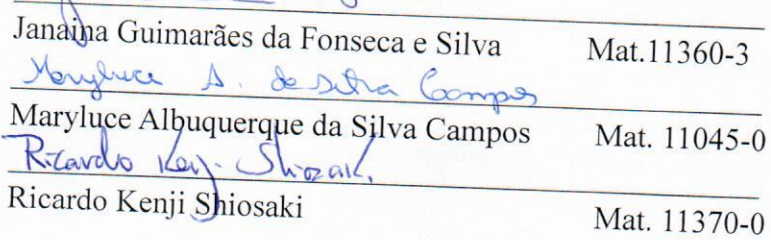 Janaina Guimarães da Fonseca e Silva Mat.11360-3
Maryluce A. da Silva Campos
Maryluce Albuquerque da Silva Campos Mat. 11045-0
Ricardo Kenji Shiozaki
Ricardo Kenji Shiosaki Mat. 11370-0